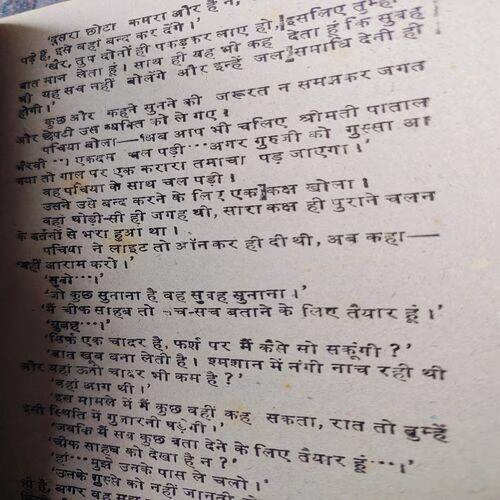 'दूसरा छोटा कमरा और है न,
पड़े हैं, इसे वहां बन्द कर देंगे।'
'खैर, तुम दोनों ही पकड़कर लाए हो, इसलिए तुम्हारी
बात मान लेता हूं। साथ ही यह भी कह देता हूं कि सुबह
भी यह सच नहीं बोलेंगे और इन्हें जल समाधि देनी ही
होगी।'
कुछ और कहने सुनने की जरूरत न समझकर जगत
और छिपटी उस व्यक्ति को ले गए।
पचिया बोला—'अब आप भी चलिए श्रीमती पाताल
भैरवी ···। एकदम चल पड़ी ···अगर गुरुजी को गुस्सा आ
गया तो गाल पर एक करारा तमाचा पड़ जाएगा।'
वह पचिया के साथ चल पड़ी।
उसने उसे बन्द करने के लिए एक कक्ष खोला।
वहां थोड़ी-सी ही जगह थी, सारा कक्ष ही पुराने चलन
के बर्तनों से भरा हुआ था।
पचिया ने लाइट तो ऑन कर ही दी थी, अब कहा—
'यहीं आराम करो।'
'सुनो···।'
'जो कुछ सुनाना है वह सुबह सुनाना।'
'मैं चीफ साहब को सच-सच बताने के लिए तैयार हूं।'
'सुबह···।'
'सिर्फ एक चादर है, फर्श पर मैं कैसे सो सकूंगी ?'
'बात खूब बना लेती है। श्मशान में नंगी नाच रही थी
और यहां ऊनी चादर भी कम है ?'
'वहां आग थी।'
'इस मामले में मैं कुछ नहीं कह सकता, रात तो तुम्हें
इसी स्थिति में गुजारनी पड़ेगी।'
'जबकि मैं सब कुछ बता देने के लिए तैयार हूं···।'
'चीफ साहब को देखा है न ?'
'हां···मुझे उनके पास ले चलो।'
'उनके गुस्से को नहीं जानतीं
ही है, अगर वह